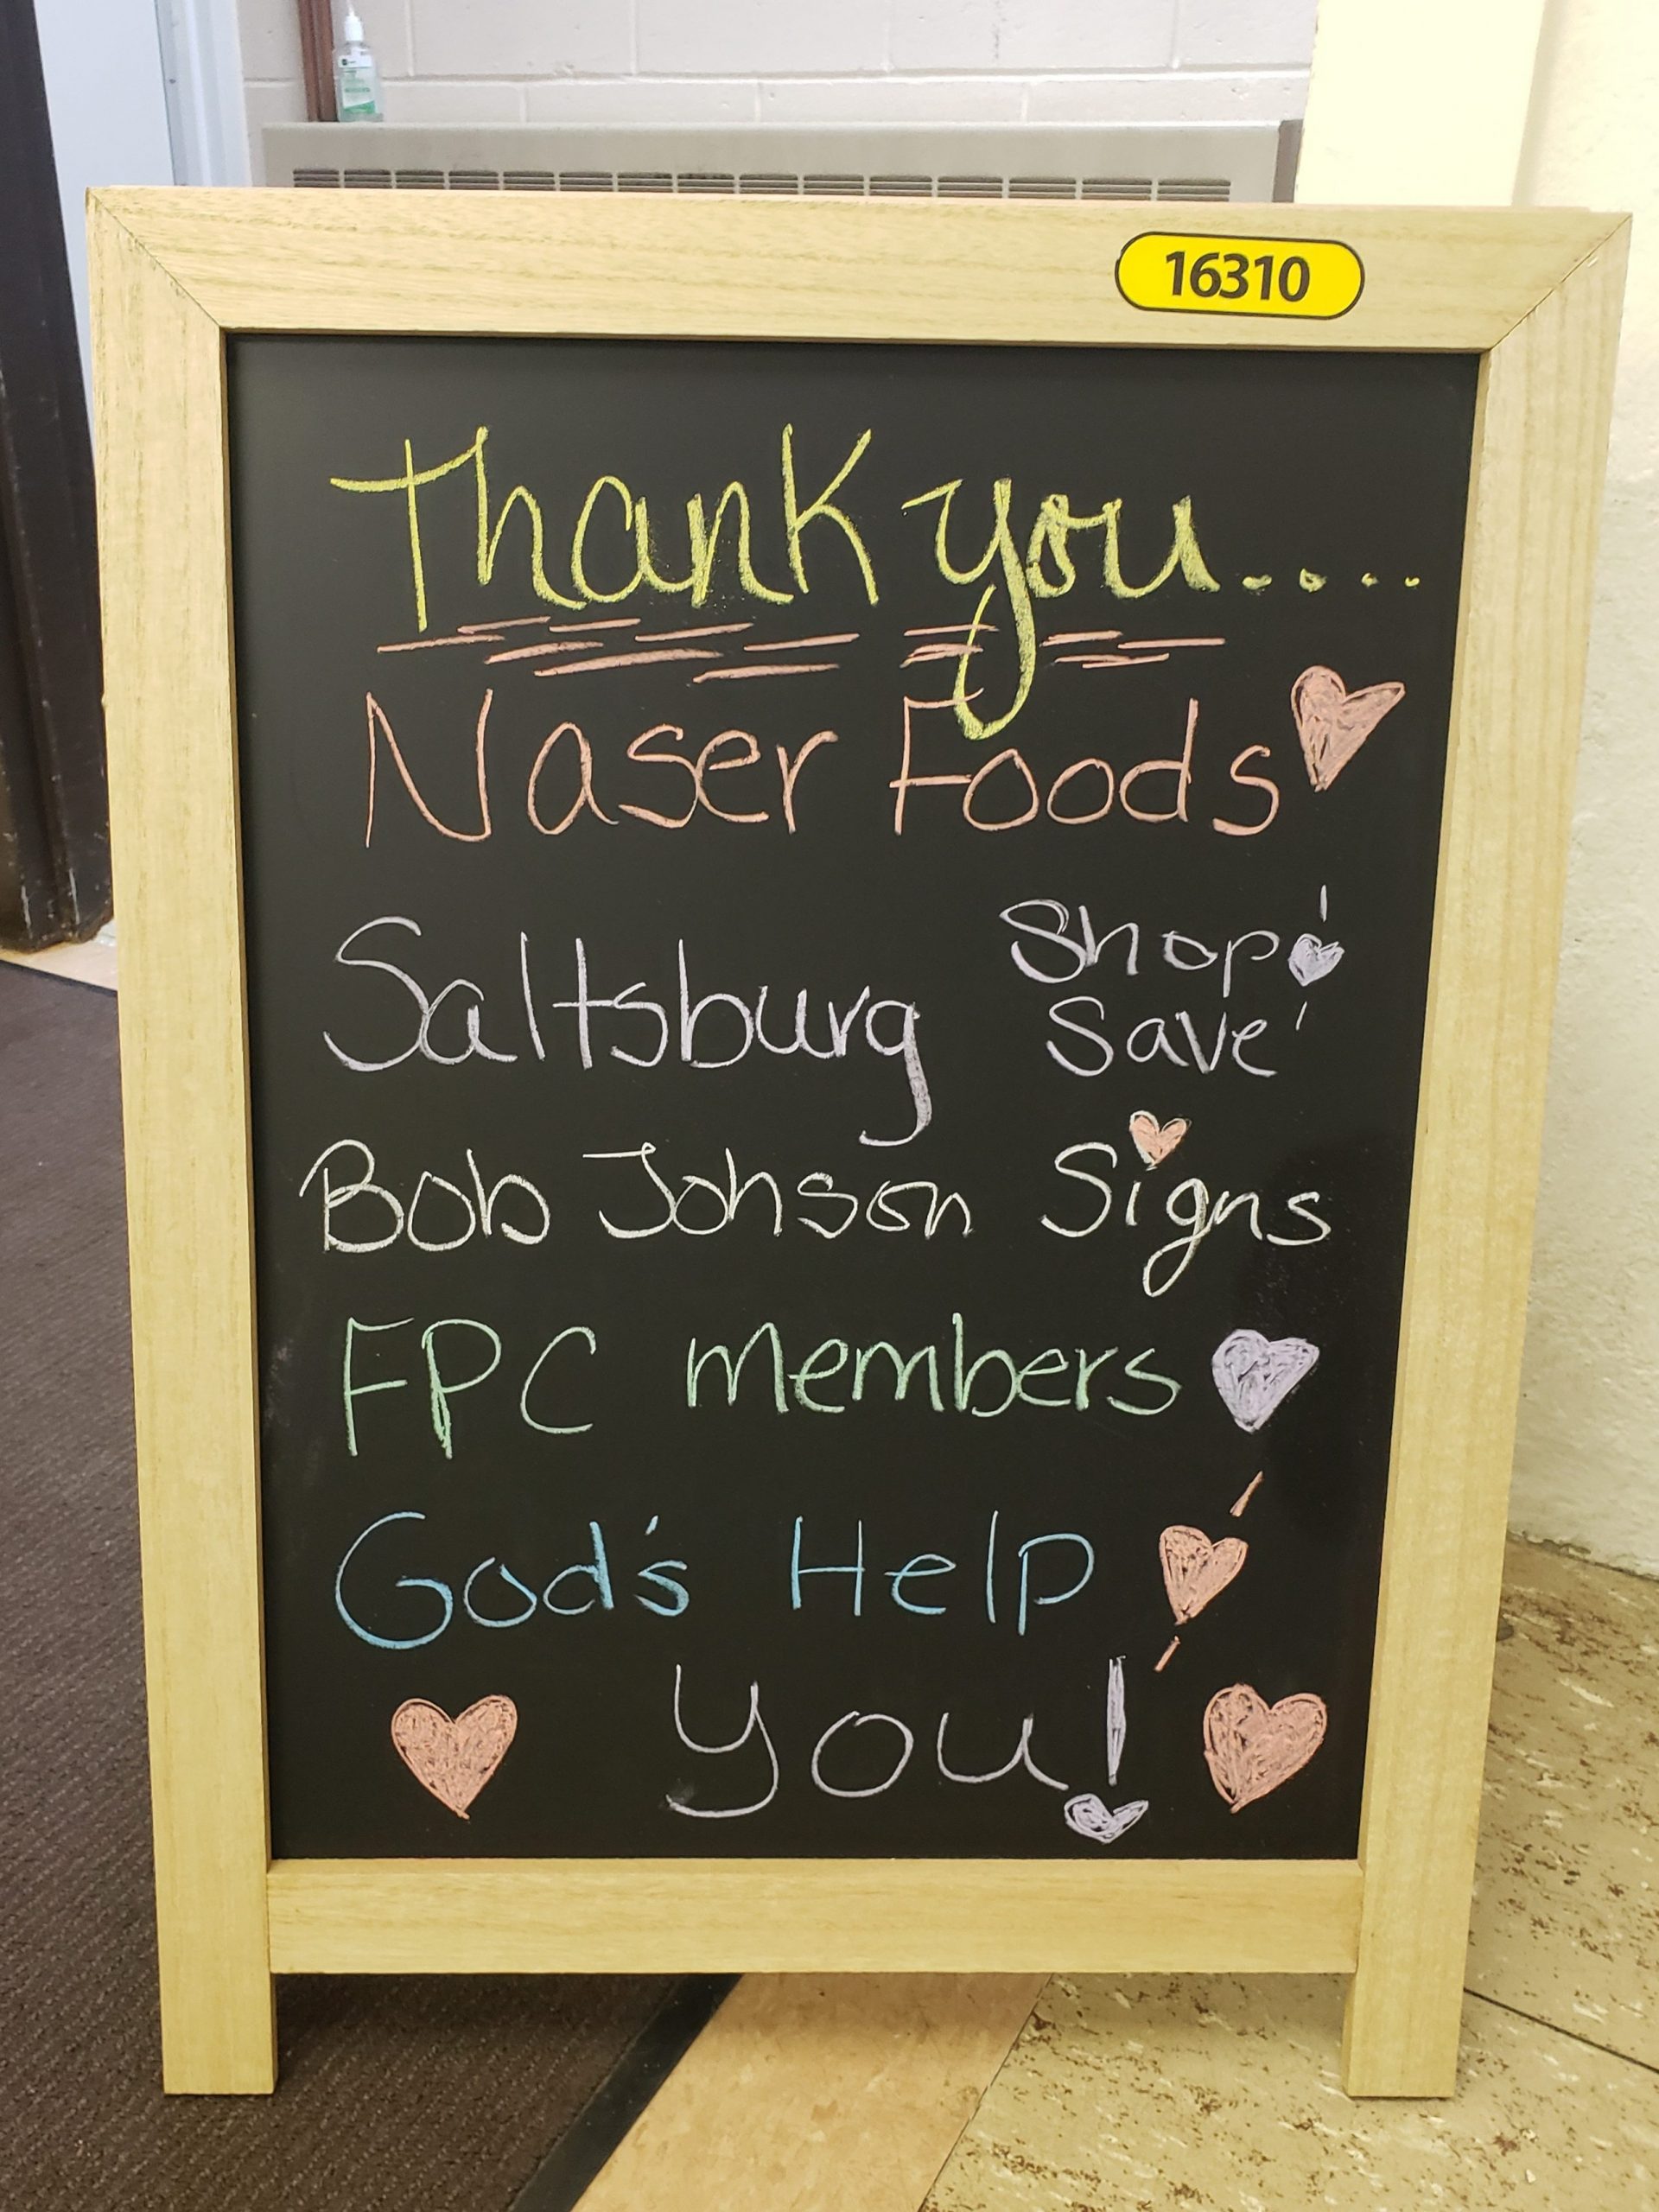 16310
Thank you....
Naser Foods
Saltsburg Shop
Save
Bob Johson Signs
FPC members
God's Help
You!